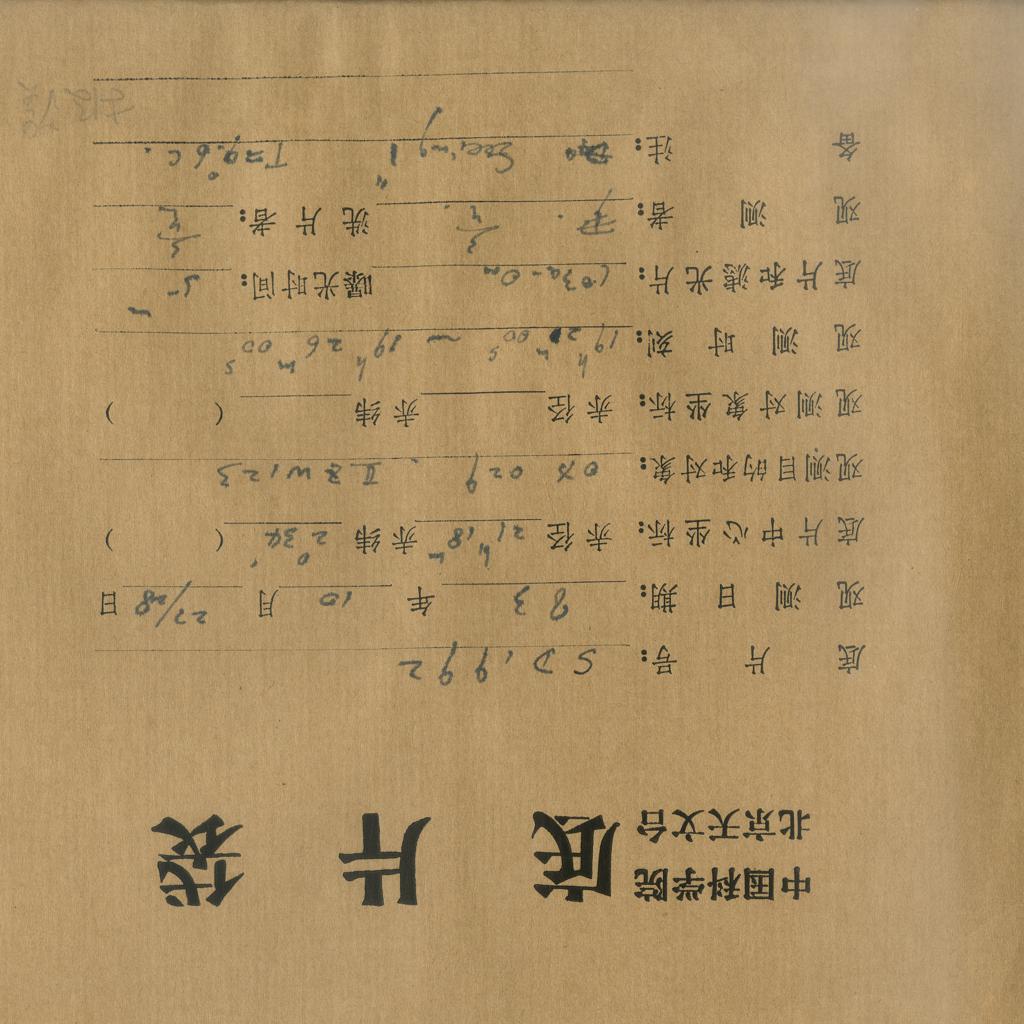 中国科学院
北京天文台
底片袋
底片号: SD1992
观测日期: 83年10月27/28日
底片中心坐标: 赤径 21h18m 赤纬 2°34' ( )
观测目的和对象: OX 029. II Zw 123
观测对象坐标: 赤径 赤纬 ( )
观测时刻: 19h21m00s — 19h26m00s
底片和滤光片: 103a-O 曝光时间: 5m
观测者: 洗片者:
备注: Seeing 1" T=9.6°C.